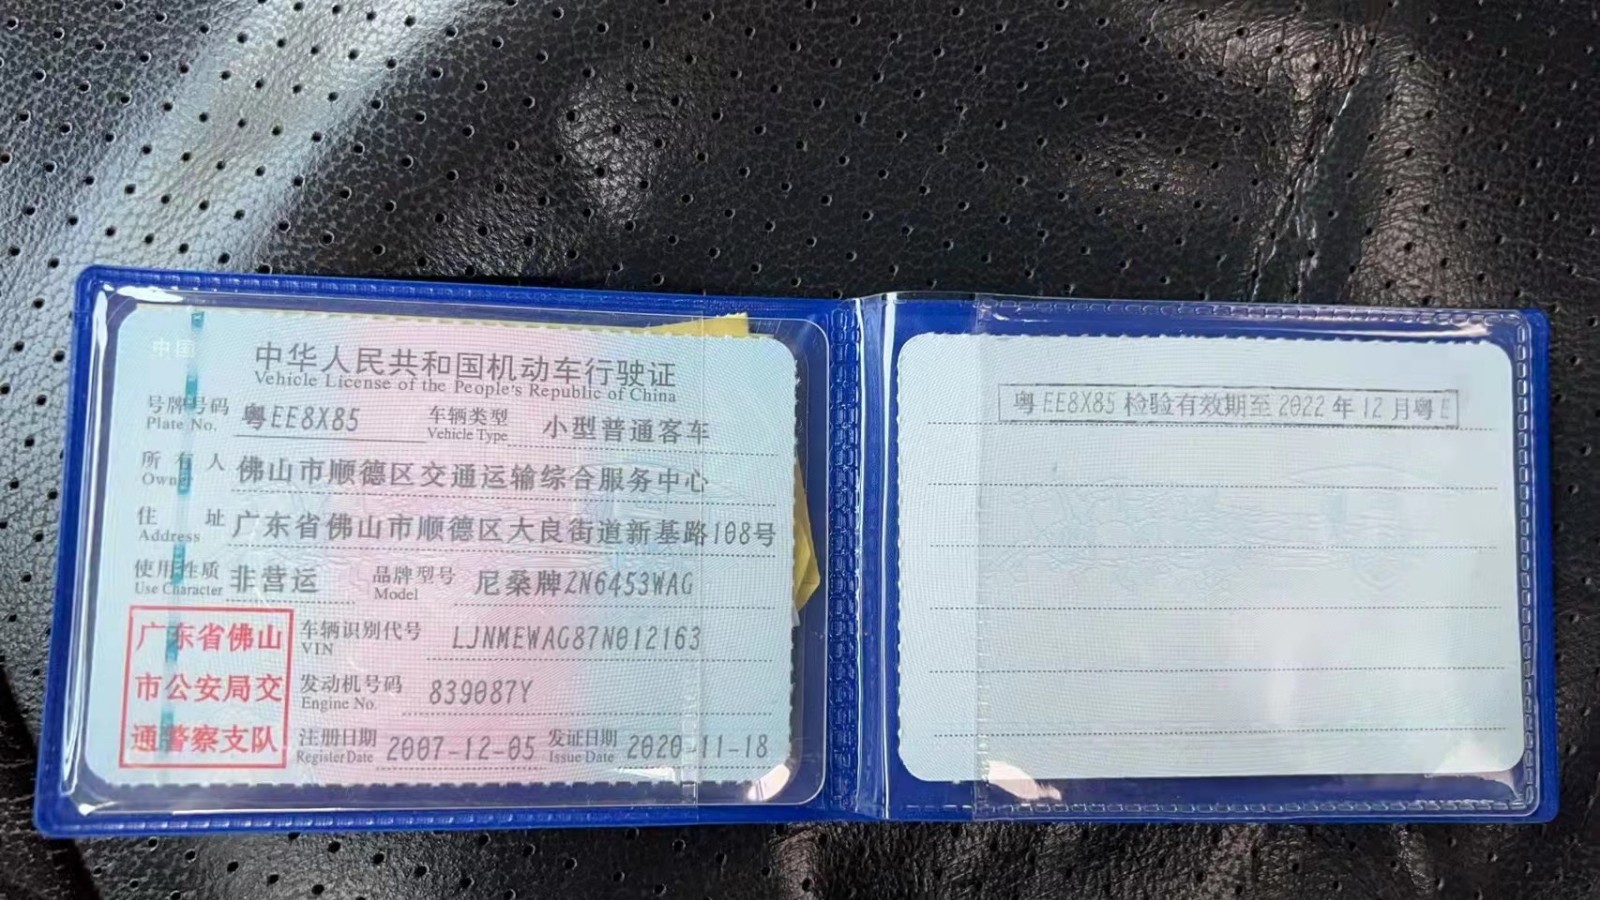 中国
中华人民共和国机动车行驶证
Vehicle License of the People's Republic of China
号牌号码 粤EE8X85 车辆类型 小型普通客车
Plate No. Vehicle Type
所有人 佛山市顺德区交通运输综合服务中心
Owner
住址 广东省佛山市顺德区大良街道新基路108号
Address
使用性质 非营运 品牌型号 尼桑牌ZN6453WAG
Use Character Model
广东省佛山
市公安局交
通警察支队
车辆识别代号 LJNMEWAG87N012163
VIN
发动机号码 839087Y
Engine No.
注册日期 2007-12-05 发证日期 2020-11-18
Register Date Issue Date
粤EE8X85 检验有效期至2022年12月粤E